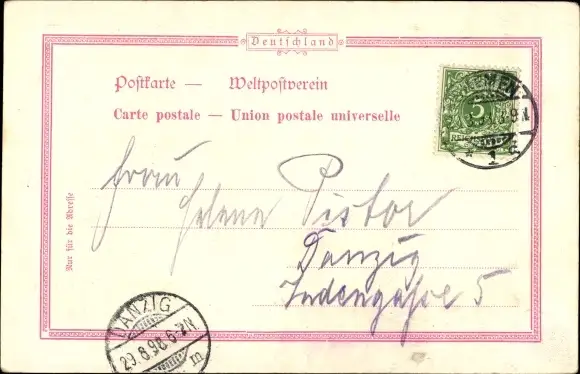 Deutschland
Postkarte — Weltpostverein
Carte postale — Union postale universelle
5
REICHSPOST
Nur für die Adresse
Frau
Helene Pistor
Danzig
Hundengasse 5
DANZIG
29.8.98.6-7N
m